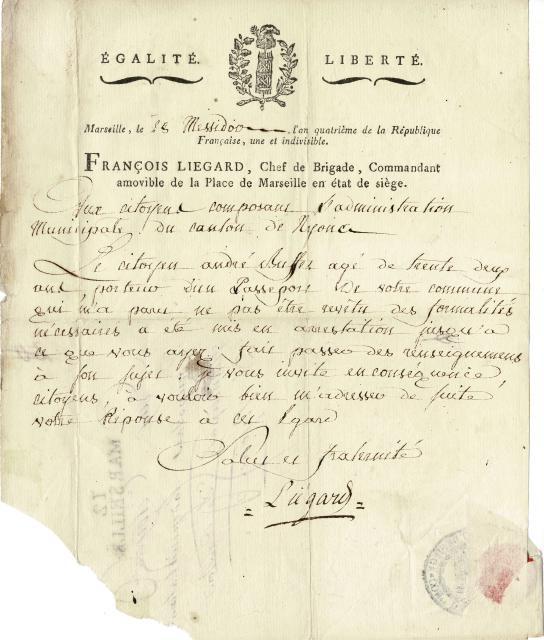 ÉGALITÉ. LIBERTÉ.
Marseille, le 28 Messidor l'an quatrième de la République
Française, une et indivisible.
FRANÇOIS LIEGARD, Chef de Brigade, Commandant
amovible de la Place de Marseille en état de siège.
Aux citoyens composant l'administration
Municipale du canton de Nyons
Le citoyen andré agé de trente deux
ans porteur d'un Passeport de votre commune
qui m'a paru ne pas être revêtu des formalités
nécessaires a eté mis en arrestation jusqu'a
ce que vous ayez fait passer des renseignemens
à son sujet je vous invite en consequence,
citoyens, a vouloir bien m'adresser de suite
votre Réponse a cet Egard
Salut et fraternité
Liégard
MARSEILLE
12